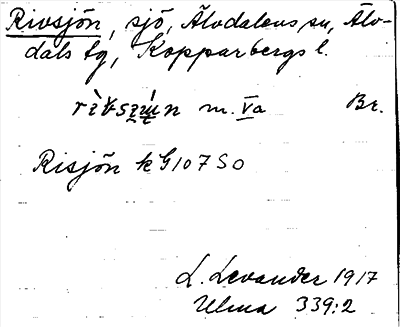 Rivsjön, sjö, Älvdalens sn, Älv-
dals tg, Kopparbergs l.
m. Va Br.
Risjön k G107 SO
L. Levander 1917
Ulma 339:2